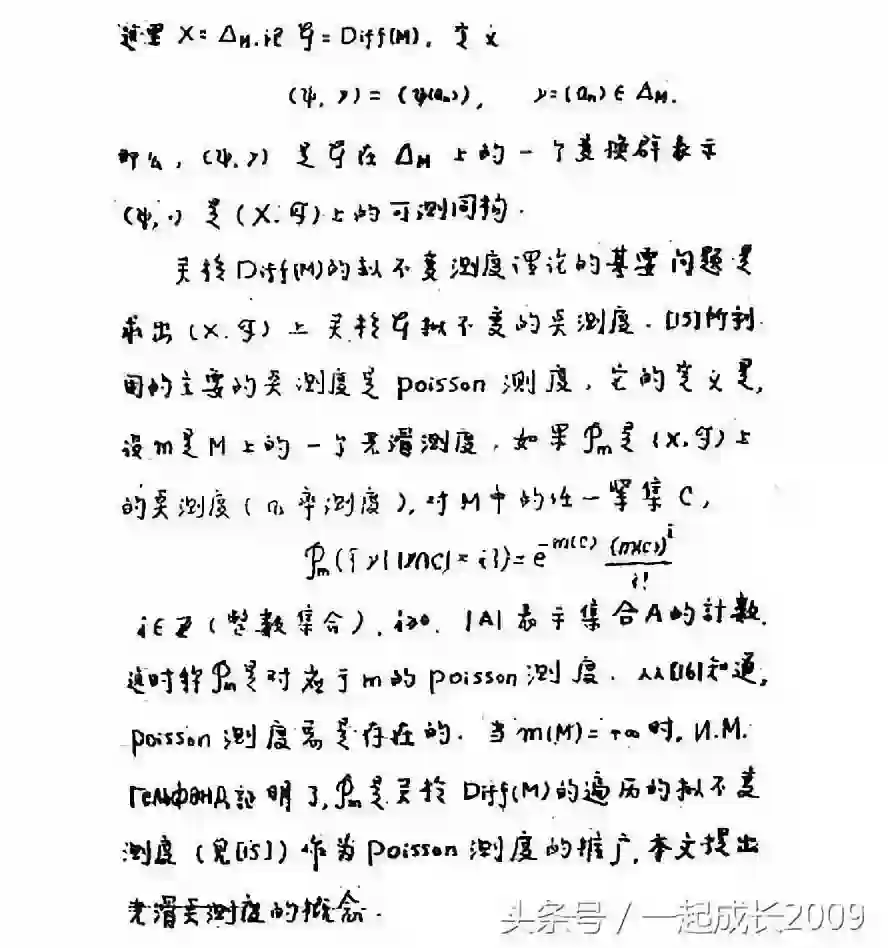 这里 X = Δ_M. 记 𝒢 = Diff(M), 定义
(ψ, γ) = (ψ(a_n)), γ = (a_n) ∈ Δ_M.
那么, (ψ, γ) 是 𝒢 在 Δ_M 上的一个变换群表示
(ψ, ·) 是 (X, 𝔉) 上的可测同构.
关于 Diff(M) 的拟不变测度理论的基要问题是
求出 (X, 𝔉) 上关于 𝒢 拟不变的吴测度. [15] 所利
用的主要的吴测度是 poisson 测度, 它的定义是,
设 m 是 M 上的一个光滑测度, 如果 𝒫_m 是 (X, 𝔉) 上
的吴测度 (几率测度), 对 M 中的任一紧集 C,
𝒫_m({γ| |γ∩C| = i}) = e^{-m(C)} (m(C))^i / i!
i ∈ Z (整数集合), i≥0. |A| 表示集合 A 的計数.
这时称 𝒫_m 是对应于 m 的 poisson 测度. 从 [16] 知道,
poisson 测度总是存在的. 当 m(M) = +∞ 时, И.М.
Гельфанд 証明了, 𝒫_m 是关于 Diff(M) 的遍历的拟不变
测度 (见 [15]) 作为 poisson 测度的推广, 本文提出
光滑吴测度的概念.
头条号 / 一起成长2009